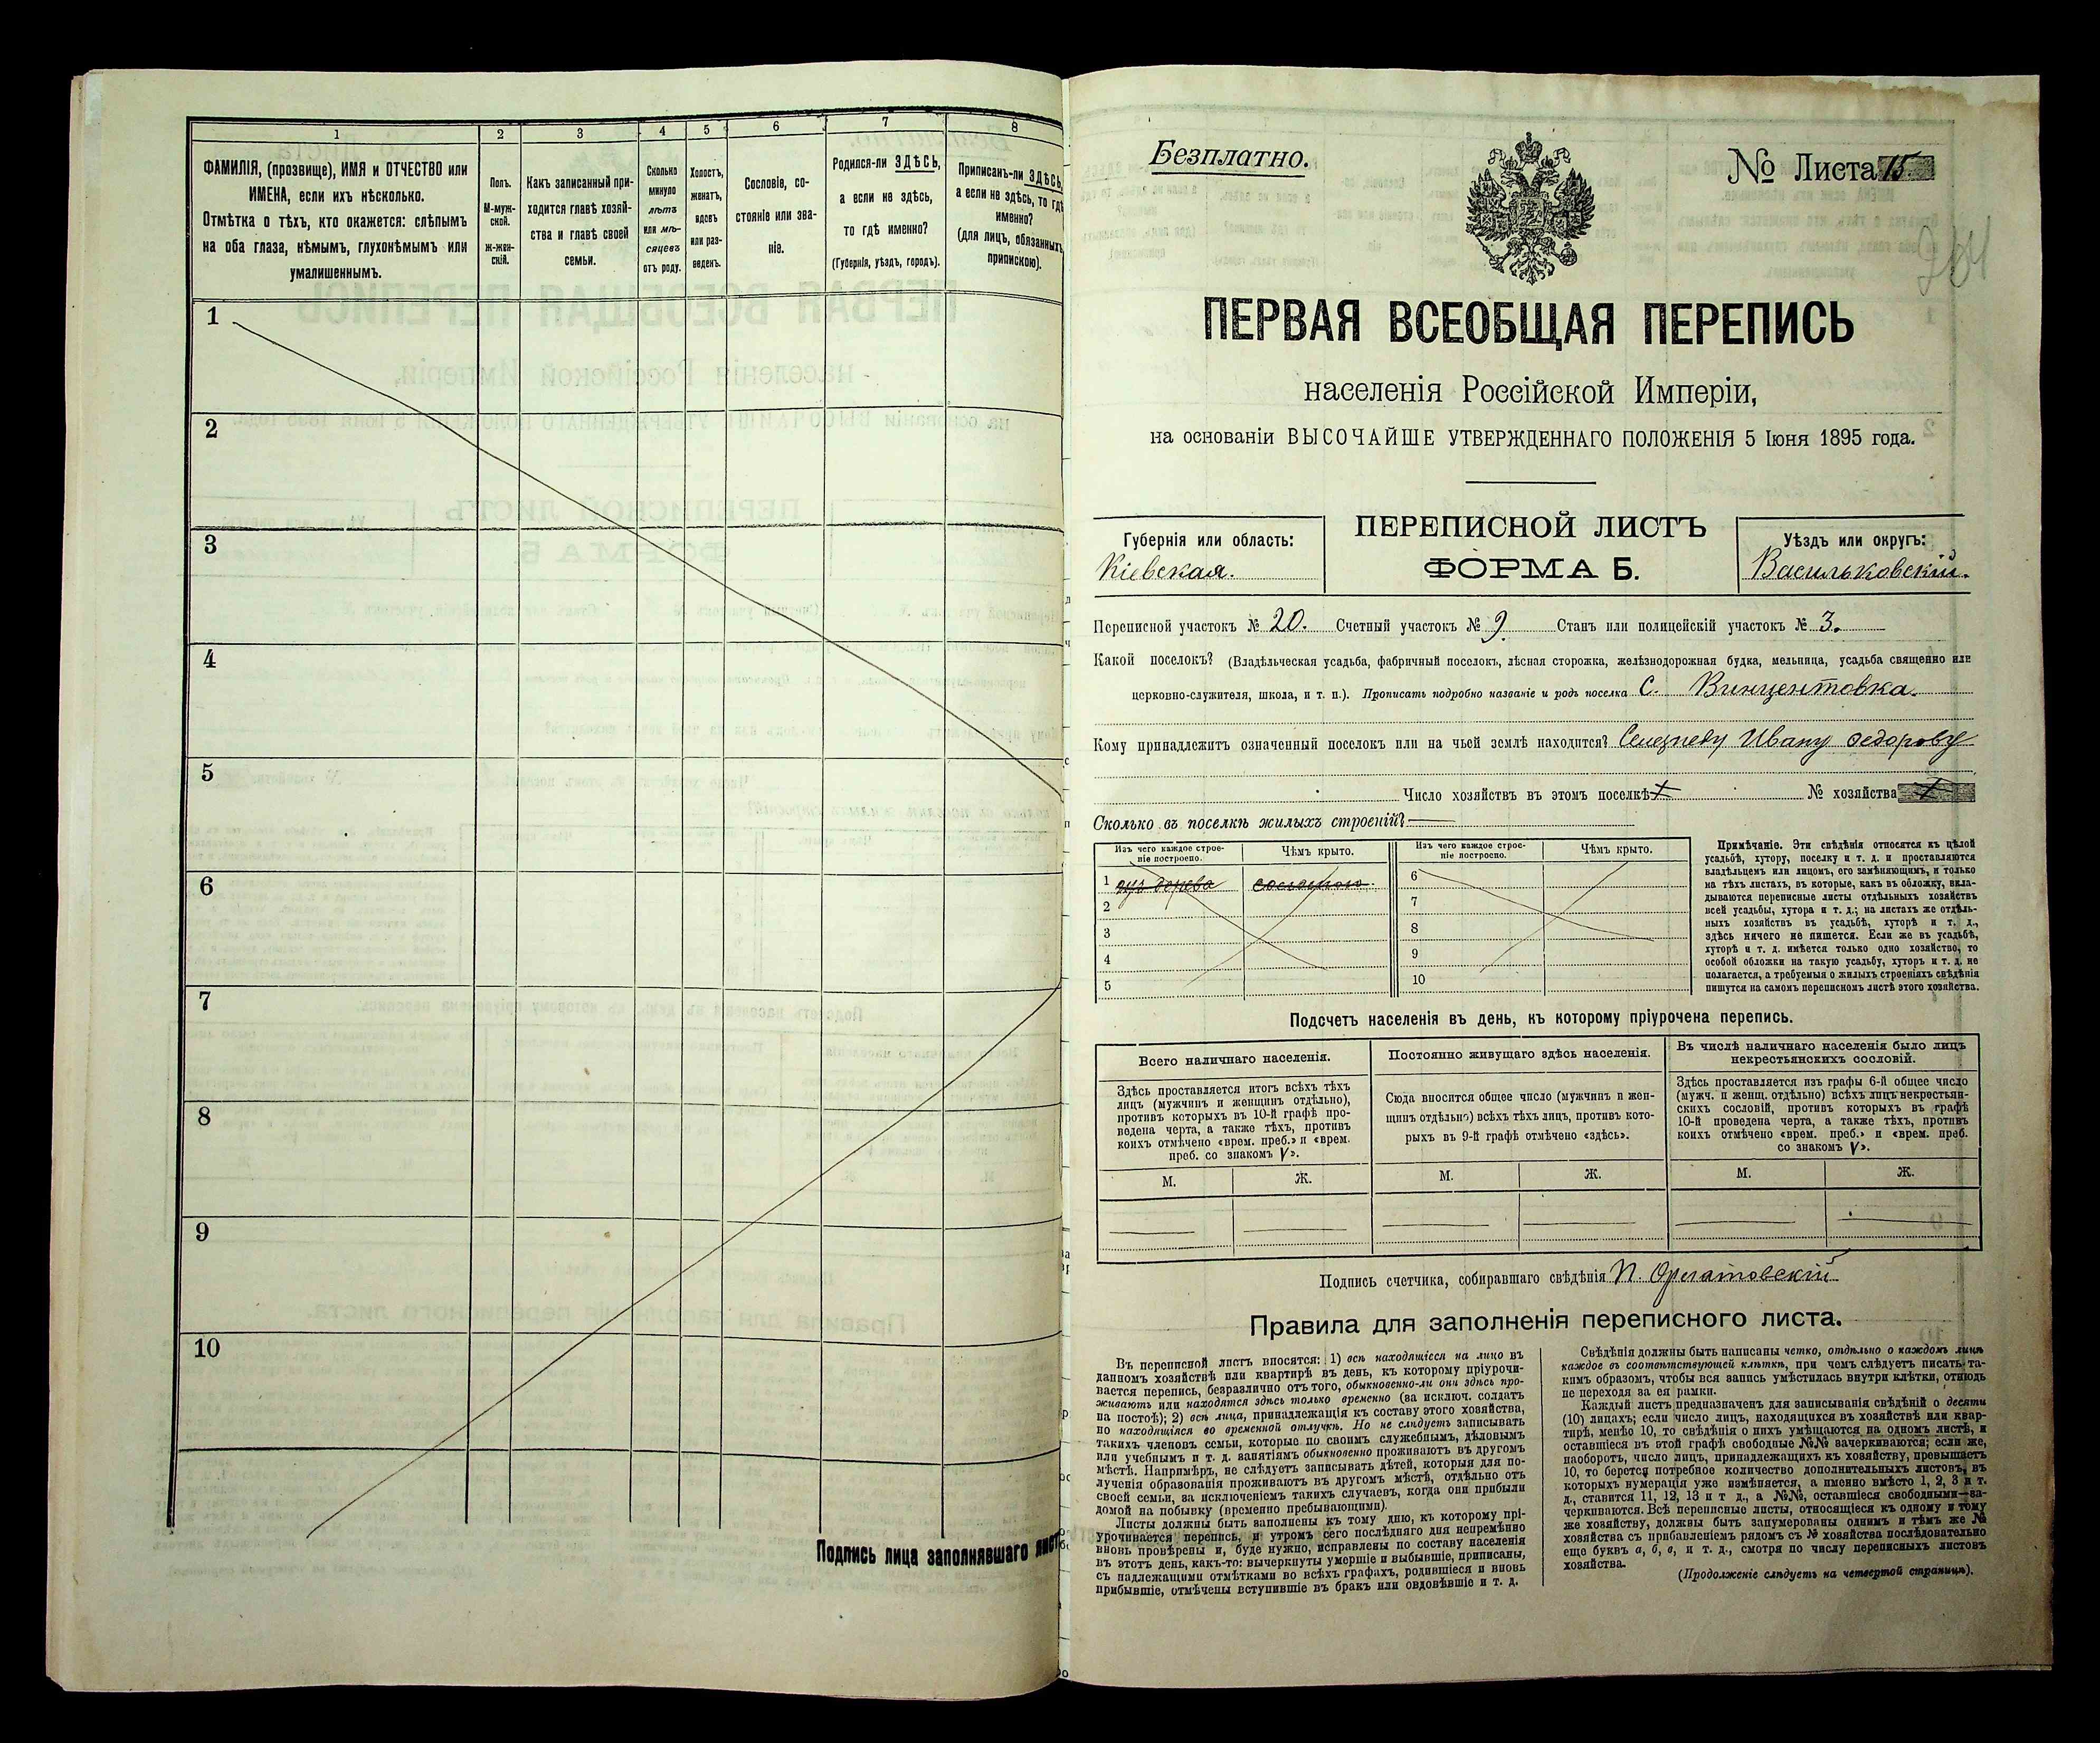 1
2
3
4
5
6
7
8
ФАМИЛІЯ, (прозвище), ИМЯ и ОТЧЕСТВО или
ИМЕНА, если ихъ нѣсколько.
Отмѣтка о тѣхъ, кто окажется: слѣпымъ
на оба глаза, нѣмымъ, глухонѣмымъ или
умалишеннымъ.
Полъ.
М-муж-
ской.
Ж-жен-
скій.
Какъ записанный при-
ходится главѣ хозяй-
ства и главѣ своей
семьи.
Сколько
минуло
лѣтъ
или мѣ-
сяцевъ
отъ роду.
Холостъ,
женатъ,
вдовъ
или раз-
веденъ.
Сословіе, со-
стояніе или зва-
ніе.
Родился-ли ЗДѢСЬ,
а если не здѣсь,
то гдѣ именно?
(Губернія, уѣздъ, городъ).
Приписанъ-ли ЗДѢСЬ,
а если не здѣсь, то гдѣ
именно?
(для лицъ, обязанныхъ
припискою).
1
2
3
4
5
6
7
8
9
10
Подпись лица заполнявшаго лист
Безплатно.
№ Листа 15
264
ПЕРВАЯ ВСЕОБЩАЯ ПЕРЕПИСЬ
населенія Россійской Имперіи,
на основаніи ВЫСОЧАЙШЕ УТВЕРЖДЕННАГО ПОЛОЖЕНІЯ 5 Іюня 1895 года.
Губернія или область:
Кіевская.
ПЕРЕПИСНОЙ ЛИСТЪ
ФОРМА Б.
Уѣздъ или округъ:
Васильковскій.
Переписной участокъ № 20. Счетный участокъ № 9 Станъ или полицейскій участокъ № 3.
Какой поселокъ? (Владѣльческая усадьба, фабричный поселокъ, лѣсная сторожка, желѣзнодорожная будка, мельница, усадьба священно или
церковно-служителя, школа, и т. п.). Прописать подробно названіе и родъ поселка С. Винцентовка.
Кому принадлежитъ означенный поселокъ или на чьей землѣ находится? Селезневу Ивану Федорову
Число хозяйствъ въ этомъ поселкѣ № хозяйства
Сколько въ поселкѣ жилыхъ строеній?
Изъ чего каждое строе-
ніе построено.
Чѣмъ крыто.
Изъ чего каждое строе-
ніе построено.
Чѣмъ крыто.
1 изъ дерева соломою
2
3
4
5
6
7
8
9
10
Примѣчаніе. Эти свѣдѣнія относятся къ цѣлой
усадьбѣ, хутору, поселку и т. д. и проставляются
владѣльцемъ или лицомъ, его замѣняющимъ, и только
на тѣхъ листахъ, въ которые, какъ въ обложку, вкла-
дываются переписные листы отдѣльныхъ хозяйствъ
всей усадьбы, хутора и т. д.; на листахъ же отдѣль-
ныхъ хозяйствъ въ усадьбѣ, хуторѣ и т. д.,
здѣсь ничего не пишется. Если же въ усадьбѣ,
хуторѣ и т. д. имѣется только одно хозяйство, то
особой обложки на такую усадьбу, хуторъ и т. д. не
полагается, а требуемыя о жилыхъ строеніяхъ свѣдѣнія
пишутся на самомъ переписномъ листѣ этого хозяйства.
Подсчетъ населенія въ день, къ которому пріурочена перепись.
Всего наличнаго населенія.
Здѣсь проставляется итогъ всѣхъ тѣхъ
лицъ (мужчинъ и женщинъ отдѣльно),
противъ которыхъ въ 10-й графѣ про-
ведена черта, а также тѣхъ, противъ
коихъ отмѣчено «врем. преб.» и «врем.
преб. со знакомъ V».
Постоянно живущаго здѣсь населенія.
Сюда вносится общее число (мужчинъ и жен-
щинъ отдѣльно) всѣхъ тѣхъ лицъ, противъ кото-
рыхъ въ 9-й графѣ отмѣчено «здѣсь».
Въ числѣ наличнаго населенія было лицъ
некрестьянскихъ сословій.
Здѣсь проставляется изъ графы 6-й общее число
(мужч. и женщ. отдѣльно) всѣхъ лицъ некрестьян-
скихъ сословій, противъ которыхъ въ графѣ
10-й проведена черта, а также тѣхъ, противъ
коихъ отмѣчено «врем. преб.» и «врем. преб.
со знакомъ V».
М. Ж. М. Ж. М. Ж.
Подпись счетчика, собиравшаго свѣдѣнія П.
Правила для заполненія переписного листа.
Въ переписной листъ вносятся: 1) всѣ находящіеся на лицо въ
данномъ хозяйствѣ или квартирѣ въ день, къ которому пріурочи-
вается перепись, безразлично отъ того, обыкновенно-ли они здѣсь про-
живаютъ или находятся здѣсь только временно (за исключ. солдатъ
на постоѣ); 2) всѣ лица, принадлежащія къ составу этого хозяйства,
но находящіяся во временной отлучкѣ. Но не слѣдуетъ записывать
такихъ членовъ семьи, которые по своимъ служебнымъ, дѣловымъ
или учебнымъ и т. д. занятіямъ обыкновенно проживаютъ въ другомъ
мѣстѣ. Напримѣръ, не слѣдуетъ записывать дѣтей, которыя для по-
лученія образованія проживаютъ въ другомъ мѣстѣ, отдѣльно отъ
своей семьи, за исключеніемъ такихъ случаевъ, когда они прибыли
домой на побывку (временно пребывающими).
Листы должны быть заполнены къ тому дню, къ которому прі-
урочивается перепись, и утромъ сего послѣдняго дня непремѣнно
вновь провѣрены и, буде нужно, исправлены по составу населенія
въ этотъ день, какъ-то: вычеркнуты умершіе и выбывшіе, приписаны,
съ надлежащими отмѣтками во всѣхъ графахъ, родившіеся и вновь
прибывшіе, отмѣчены вступившіе въ бракъ или овдовѣвшіе и т. д.
Свѣдѣнія должны быть написаны четко, отдѣльно о каждомъ лицѣ
каждое въ соотвѣтствующей клѣткѣ, при чемъ слѣдуетъ писать та-
кимъ образомъ, чтобы вся запись умѣстилась внутри клѣтки, отнюдь
не переходя за ея рамки.
Каждый листъ предназначенъ для записыванія свѣдѣній о десяти
(10) лицахъ; если число лицъ, находящихся въ хозяйствѣ или квар-
тирѣ, менѣе 10, то свѣдѣнія о нихъ умѣщаются на одномъ листѣ, и
оставшіеся въ этой графѣ свободные №№ зачеркиваются; если же,
наоборотъ, число лицъ, принадлежащихъ къ хозяйству, превышаетъ
10, то берется потребное количество дополнительныхъ листовъ, въ
которыхъ нумерація уже измѣняется, а именно вмѣсто 1, 2, 3 и т.
д., ставится 11, 12, 13 и т д., а №№, оставшіеся свободными—за-
черкиваются. Всѣ переписные листы, относящіеся къ одному и тому
же хозяйству, должны быть занумерованы однимъ и тѣмъ же №
хозяйства съ прибавленіемъ рядомъ съ № хозяйства послѣдовательно
еще буквъ а, б, в, и т. д., смотря по числу переписныхъ листовъ
хозяйства.
(Продолженіе слѣдуетъ на четвертой страницѣ).